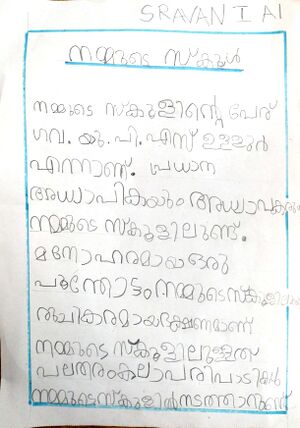 SRAVAN I A1
നമ്മുടെ സ്കൂൾ
നമ്മുടെ സ്കൂളിന്റെ പേര്
ഗവ. യു. പി. എസ് ഉള്ളൂർ
എന്നാണ്. പ്രധാന
അധ്യാപികയും അധ്യാപകരും
നമ്മുടെ സ്കൂളിലുണ്ട്.
മനോഹരമായ ഒരു
പൂന്തോട്ടം നമ്മുടെ സ്കൂളിലുണ്ട്
രുചികരമായ ഭക്ഷണമാണ്
നമ്മുടെ സ്കൂളിലുള്ളത്
പലതരം കലാപരിപാടികൾ
നമ്മുടെ സ്കൂളിൽ നടത്താറുണ്ട്